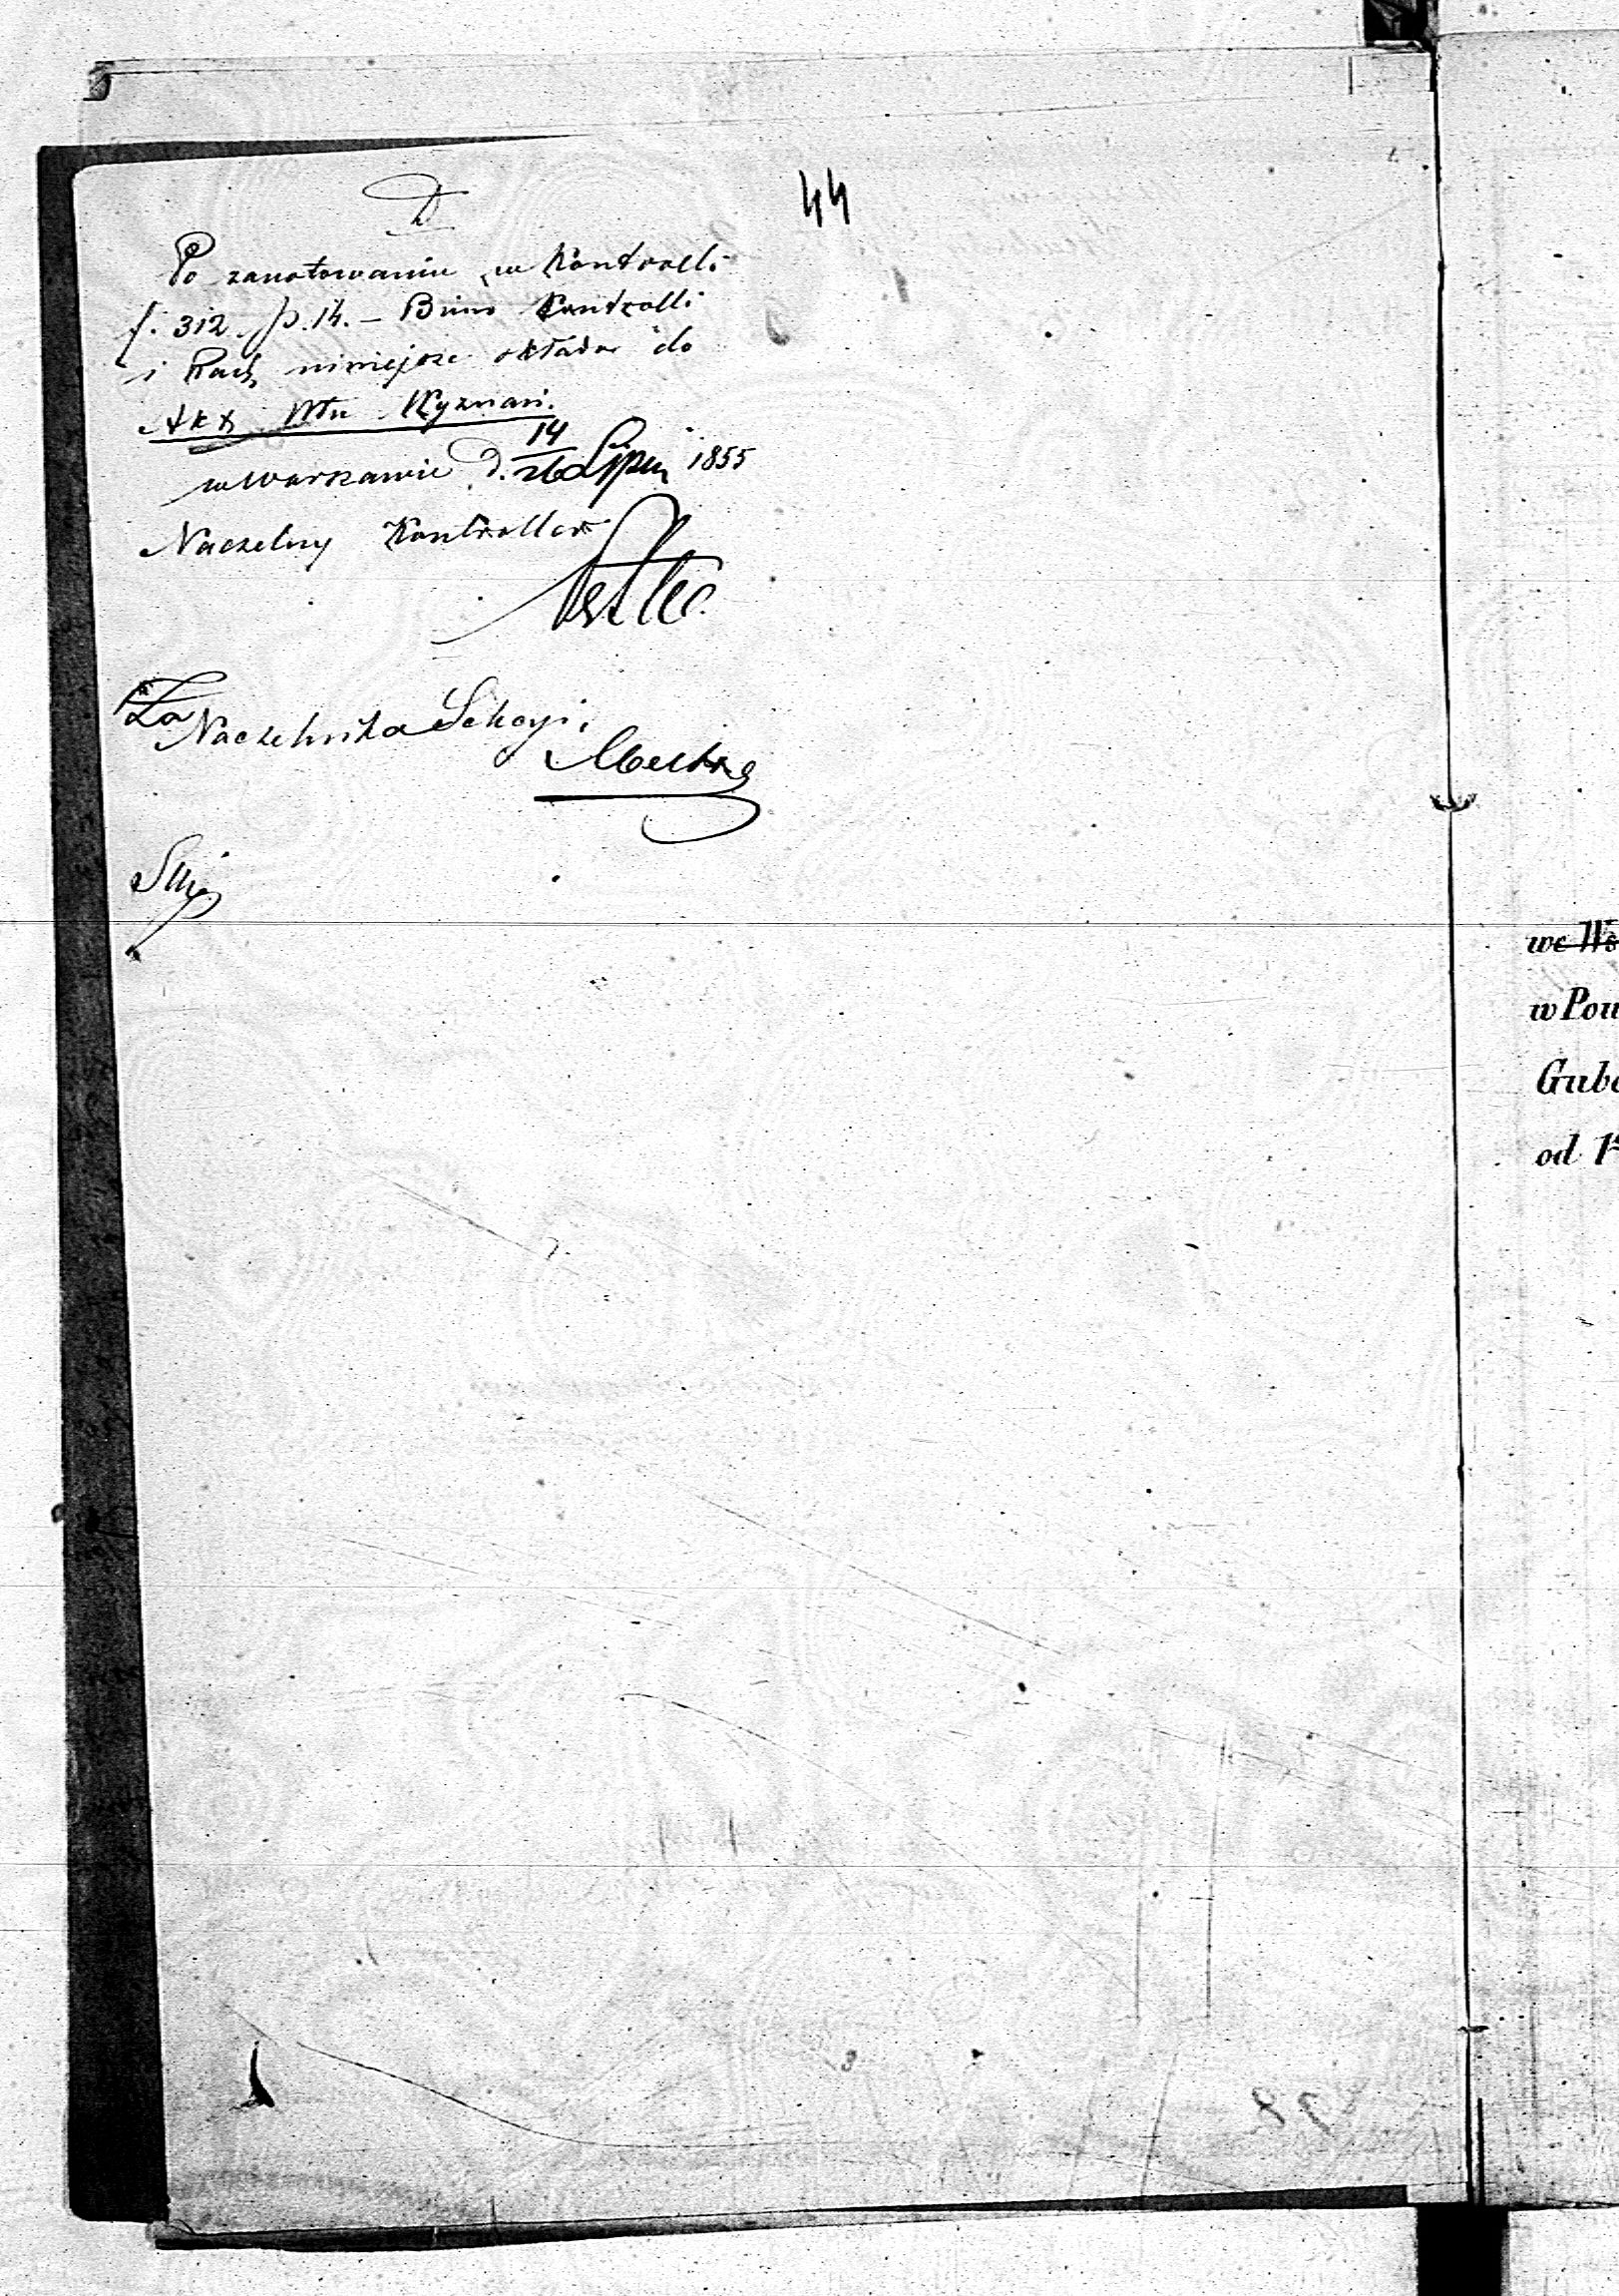 44
Po zanotowaniu w Kontrolli
f. 312. p. 14. – Biuro Kontrolli
i Rach niniejsze składa do
Akt Wyznań.
w Warszawie d. 14/26 Lipca 1855
Naczelny Kontroller
Za Naczelnika Sekcyi.
we Ws
w Pow
Gube
od 1